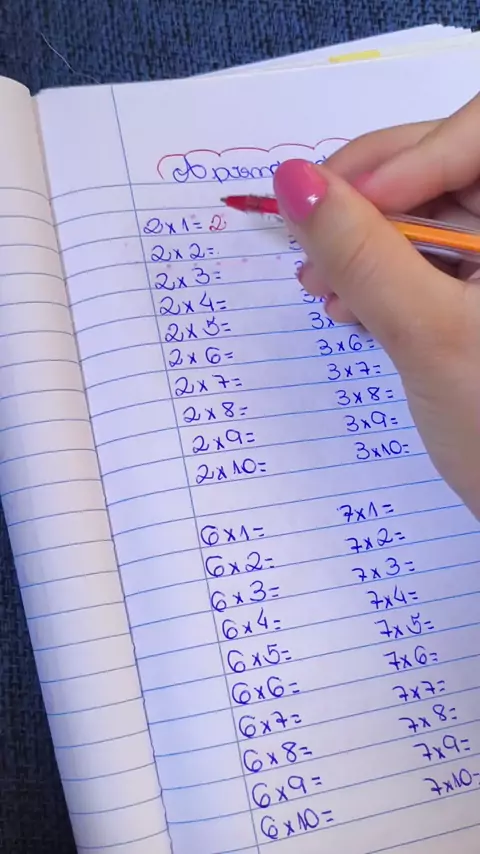 2x1=2
2x2=
2x3=
2x4=
2x5=
2x6= 3x6=
2x7= 3x7=
2x8= 3x8=
2x9= 3x9=
2x10= 3x10=
6x1= 7x1=
6x2= 7x2=
6x3= 7x3=
6x4= 7x4=
6x5= 7x5=
6x6= 7x6=
6x7= 7x7=
6x8= 7x8=
6x9= 7x9=
6x10= 7x10=